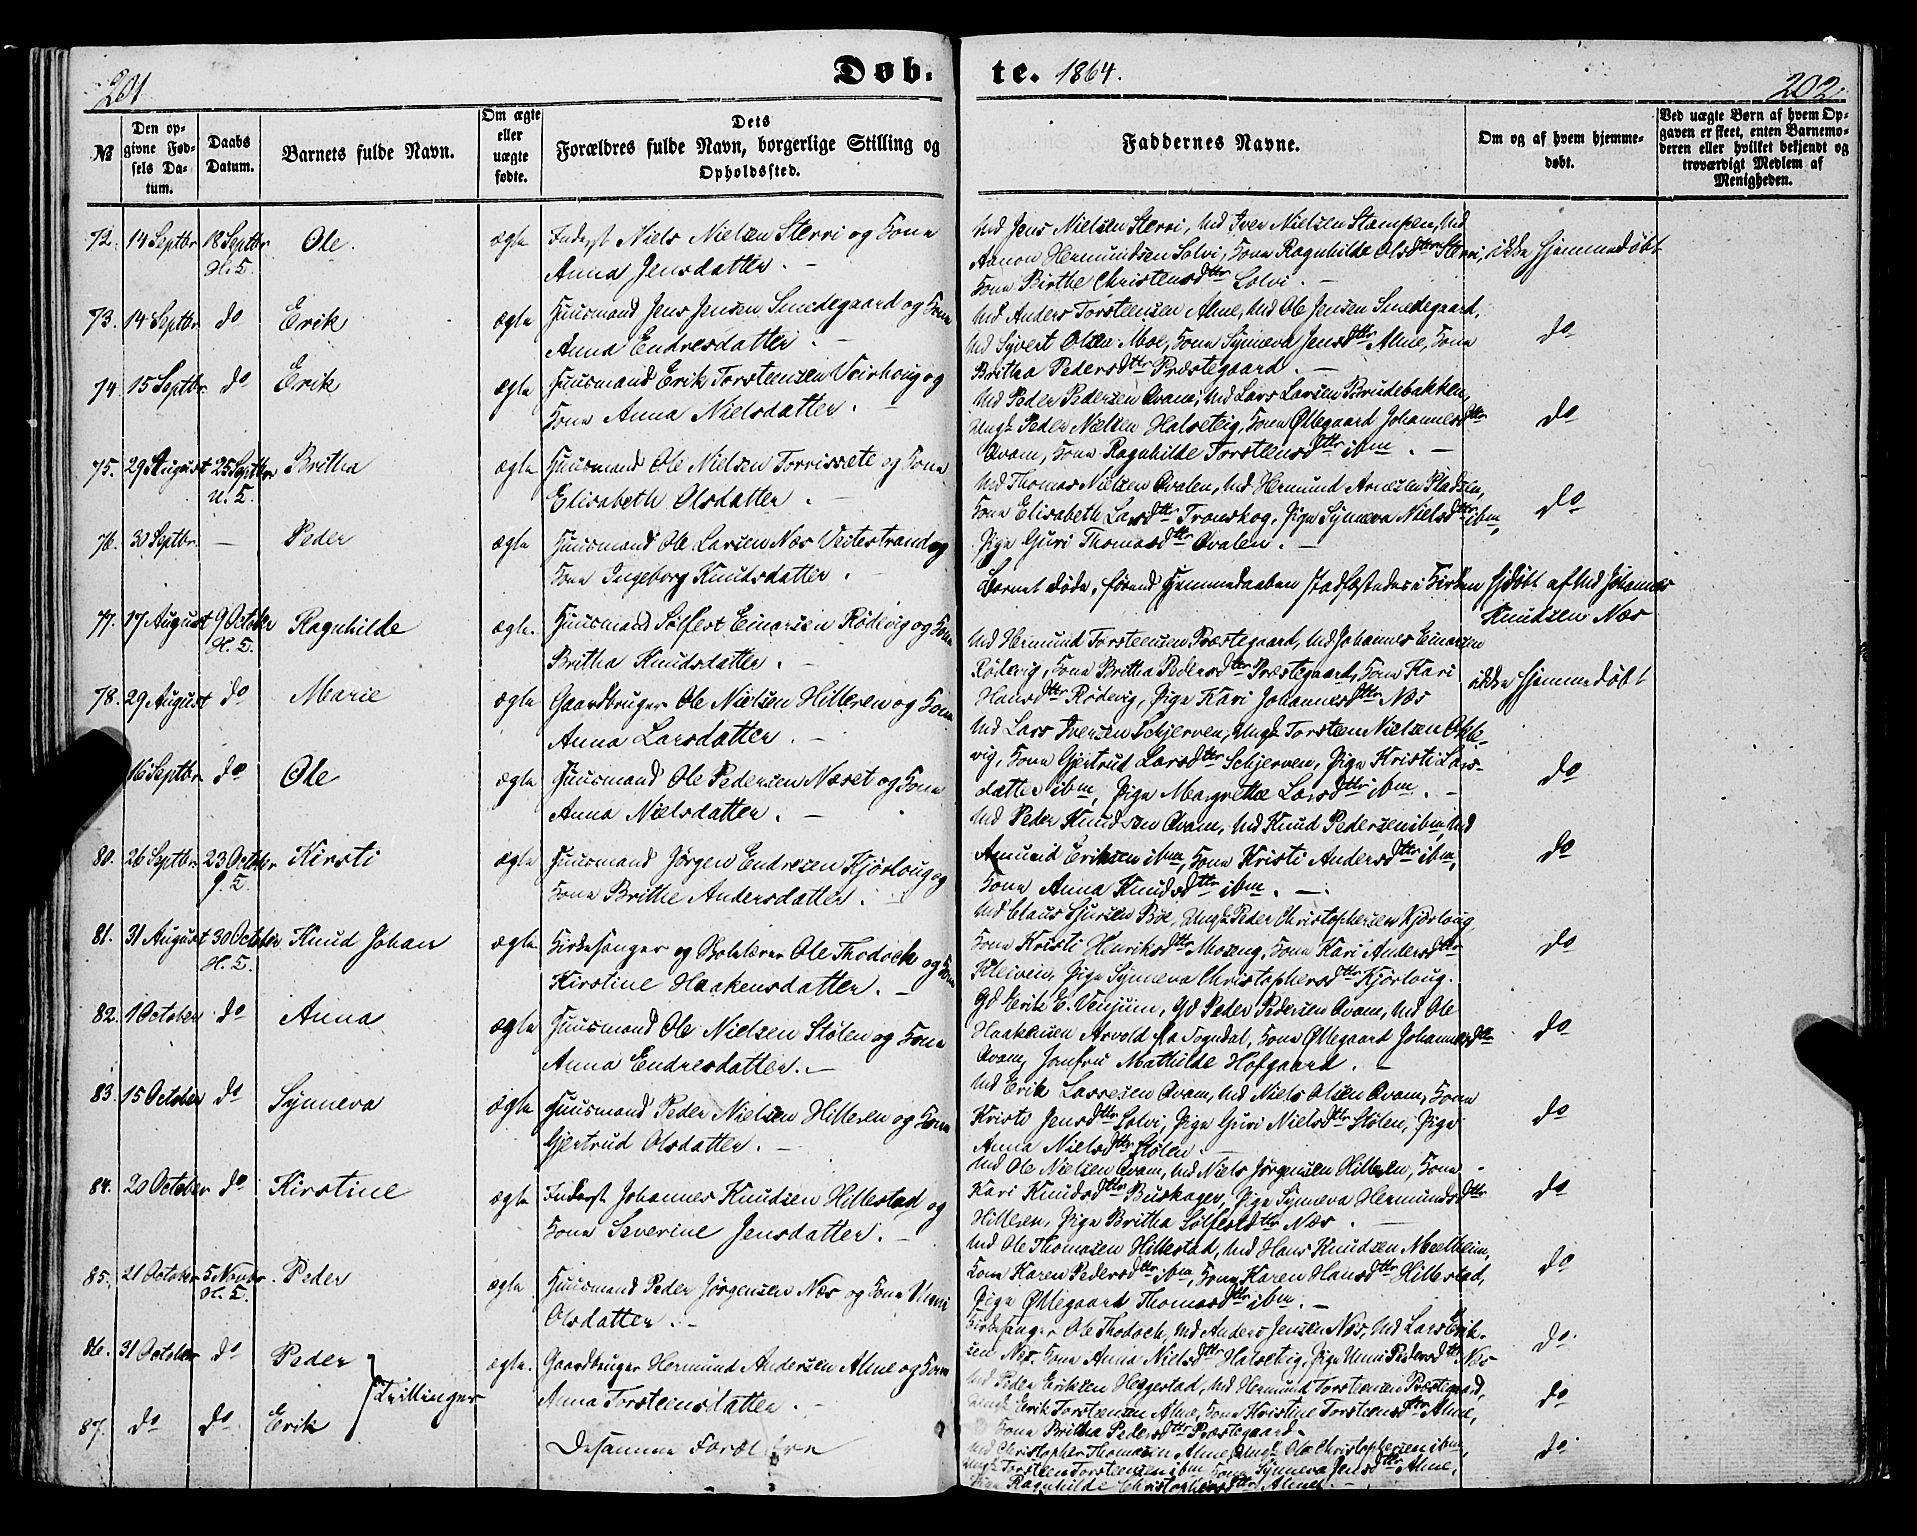 201
Døb-
te. 1864.
202.
№
Den opgivne Fødsels Datum.
Daabs Datum.
Barnets fulde Navn.
Om ægte eller uægte fødte.
Dets
Forældres fulde Navn, borgerlige Stilling og
Opholdssted.
Faddernes Navne.
Om og af hvem hjemmedøbt.
Ved uægte Børn af hvem Opgaven er skeet, enten Barnemoderen eller hvilket bekjendt og troværdigt Medlem af Menigheden.
72. 14 Septbr 18 Septbr H. K. Ole. ægte Inderst Niels Nielsen Sterri og Kone
Anna Jensdatter. –
Ud Jens Nielsen Sterri, Ud Iver Nielsen Stampen, Ud
Aamon Hermundsen Solvi, Kone Ragnhilde Olsdttr Sterri, ikke hjemmedøbt
Kone Birthe Christensdttr Solvi. –
73. 14 Septbr do Erik ægte Huusmand Jens Jensen Smedegaard og Kone
Anna Endresdatter. –
Ud Anders Torsteensen Alme, Ud Ole Jensen Smedegaard,
Ud Sjvert Olsen Moe, Kone Synneva Jensdttr Alme, Kone do
Britha Pedersdttr Præstegaard. –
74. 15 Septbr. do Erik ægte Huusmand Erik Torsteensen Veirhoug og
Kone Anna Nielsdatter. –
Ud Peder Pedersen Qvam, Ud Lars Larsen Brudebakken,
Ungk Peder Nielsen Halseteig, Kone Øllegaard Johannesdttr do
Qvam, Kone Ragnhilde Torsteensdttr ibm. –
75. 29 August 25 Septbr U. K. Britha ægte Huusmand Ole Nielsen Torrissete og Kone
Elisabeth Olsdatter. –
Ud Thomas Nielsen Qvalen, Ud Hermund Arnesen Pladsen,
Kone Elisabeth Larsdttr Tronskog, Pige Synneva Nielsdttr ibm, do
Pige Guri Thomasdttr Qvalen. –
76. 30 Septbr. – Peder ægte Huusmand Ole Larsen Næs Veitestrand og
Kone Ingeborg Knudsdatter.
Barnet døde, førend Hjemmedaaben stadfæstedes i Kirken Hjdøbt af Ud Johannes
Knudsen Næs
77. 17 August 9 October H. K. Ragnhilde ægte. Huusmand Sølfest Einarsen Rødevig og Kone
Britha Knudsdatter. –
Ud Hermund Torsteensen Præstegaard, Ud Johannes Einarsen
Rødevig, Kone Britha Pedersdttr Præstegaard, Kone Kari ikke hjemmedøbt
Hansdttr Rødevig, Pige Kari Johannesdttr Næs
78. 29 August do Marie ægte Gaardbruger Ole Nielsen Hilleren og Kone
Anna Larsdatter. –
Ud Lars Iversen Schjerven, Ungk Torsteen Nielsen Okle-
vig, Kone Gjertrud Larsdttr Schjerven, Pige Kristi Lars- do
datter ibm, Pige Margrethe Larsdttr ibm. –
16 Septbr. do Ole ægte Huusmand Ole Pedersen Næset og Kone
Anna Nielsdatter. –
Ud Peder Knudsen Qvam, Ud Knud Pedersen ibm, Ud
Amund Eriksen ibm, Kone Kristi Andersdttr ibm, do
Kone Anna Knudsdttr ibm. –
80. 26 Septbr. 23 October J. K. Kirsti ægte Huusmand Jørgen Endresen Kjørloug og
Kone Brithe Andersdatter. –
Ud Claus Sjursen Bøe, Ungk Peder Christophersen Kjørloug,
Kone Kristi Henriksdttr Moseng, Kone Kari Andersdttr do
Kleiven, Pige Synneva Christophersdttr Kjørloug.
81. 31 August 30 October H. K. Knud Johan ægte. Kirkesanger og Skolelærer Ole Thodock og Kone
Kirstine Haakensdatter. –
Gd Erik E. Venjum, Gd Peder Pedersen Qvam, Ud Ole
Haakensen Arvold fra Sogndal, Kone Øllegaard Johannesdttr do
Qvam, Jomfru Mathilde Hofgaard. –
82. 1 October do Anna ægte Huusmand Ole Nielsen Stølen og Kone
Anna Endresdatter. –
Ud Erik Lassesen Qvam, Ud Niels Olsen Qvam, Kone
Kristi Jensdttr Solvi, Pige Guri Nielsdttr Stølen, Pige do
Anna Nielsdttr Stølen. –
83. 15 October do Synneva ægte Huusmand Peder Nielsen Hilleren og Kone
Gjertrud Olsdatter. –
Ud Ole Nielsen Qvam, Ud Niels Jørgensen Hilleren, Kone
Kari Knudsdttr Buskager, Pige Synneva Hermundsdttr do
Hilleren, Pige Britha Sølfestdttr Næs. –
84. 20 October do Kirstine ægte Inderst Johannes Knudsen Hillestad og
Kone Severine Jensdatter. –
Ud Ole Thomasen Hillestad, Ud Hans Knudsen Meelheim,
Kone Karen Pedersdttr ibm, Kone Karen Hansdttr Hillestad, do
Pige Øllegaard Thomasdttr ibm. –
85. 21 October 5 Novbr. H. K. Peder ægte Huusmand Peder Jørgensen Næs og Kone Unni
Olsdatter. –
Kirkesanger Ole Thodock, Ud Anders Jensen Næs, Ud Lars Erik-
sen Næs, Kone Anna Nielsdttr Halseteig, Pige Unni Pedersdttr Næs do.
86. 31 October do Peder ægte. Gaardbruger Hermund Andersen Alme og Kone
Tvillinger
Anna Torsteinsdatter. –
Ud Peder Eriksen Heggestad, Ud Hermund Torsteensen Præstegaard,
Ungk Erik Torsteensen Alme, Kone Kristine Torsteensdttr Alme, do
Kone Britha Pedersdttr Præstegaard.
87. do do Erik Desamme Forældre
Ud Christopher Thomasen Alme, Ungk Ole Christophersen ibm, do.
Ungk Torsteen Torsteensen ibm, Kone Synneva Jensdttr Alme,
Pige Ragnhilde Christophersdttr Alme. –